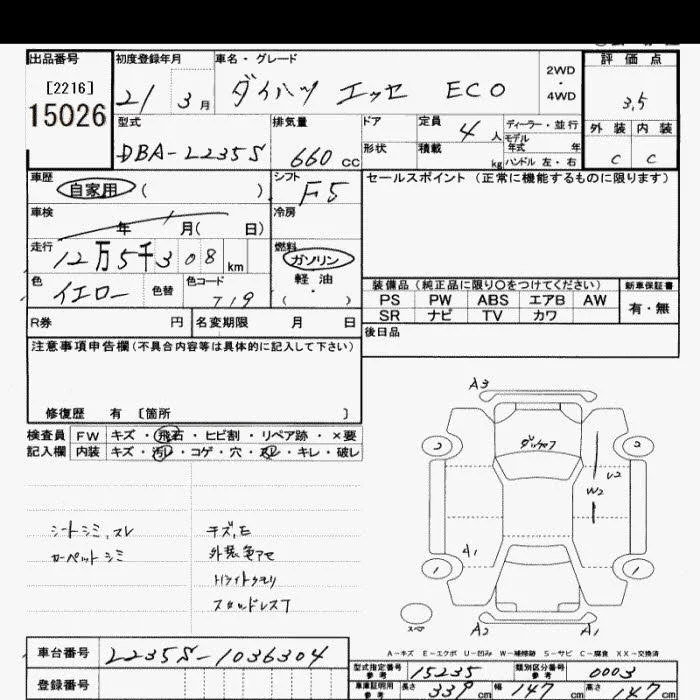 出品番号 初度登録年月 車名・グレード 評価点
[2216]
15026
21 3月 ダイハツ エッセ ECO 2WD・4WD 3.5
型式 排気量 ドア 定員 4人 ディーラー・並行 外装 内装
DBA-L235S 660cc 形状 積載 kg モデル年式 年 C C
ハンドル 左・右
車歴 自家用 ( ) シフト F5 セールスポイント (正常に機能するものに限ります)
車検 年 月( 日) 冷房
走行 12万5千308km 燃料 ガソリン・軽油 ( )
色 イエロー 色替 色コード T19
装備品 (純正品に限り○をつけてください) 新車保証書
PS PW ABS エアB AW 有・無
SR ナビ TV カワ
R券 円 名変期限 月 日 後日品
注意事項申告欄(不具合内容等は具体的に記入して下さい)
修復歴 有 〔箇所 〕
検査員 FW キズ・飛石・ヒビ割・リペア跡・×要
記入欄 内装 キズ・汚レ・コゲ・穴・スレ・キレ・破レ
シートシミ、スレ キズ、E
カーペットシミ 外装色アセ
トライトクモリ
スタッドレスT
A3
2 2
U2
W2
A1
1 1
スペア A2 A1
A-キズ E-エクボ U-凹み W-補修跡 S-サビ C-腐食 XX-交換済
車台番号 L235S-1036304
登録番号
型式指定番号 参考 15235 類別区分番号 参考 0003
車庫証明用 参考 長さ 339cm 幅 147cm 高さ 147cm